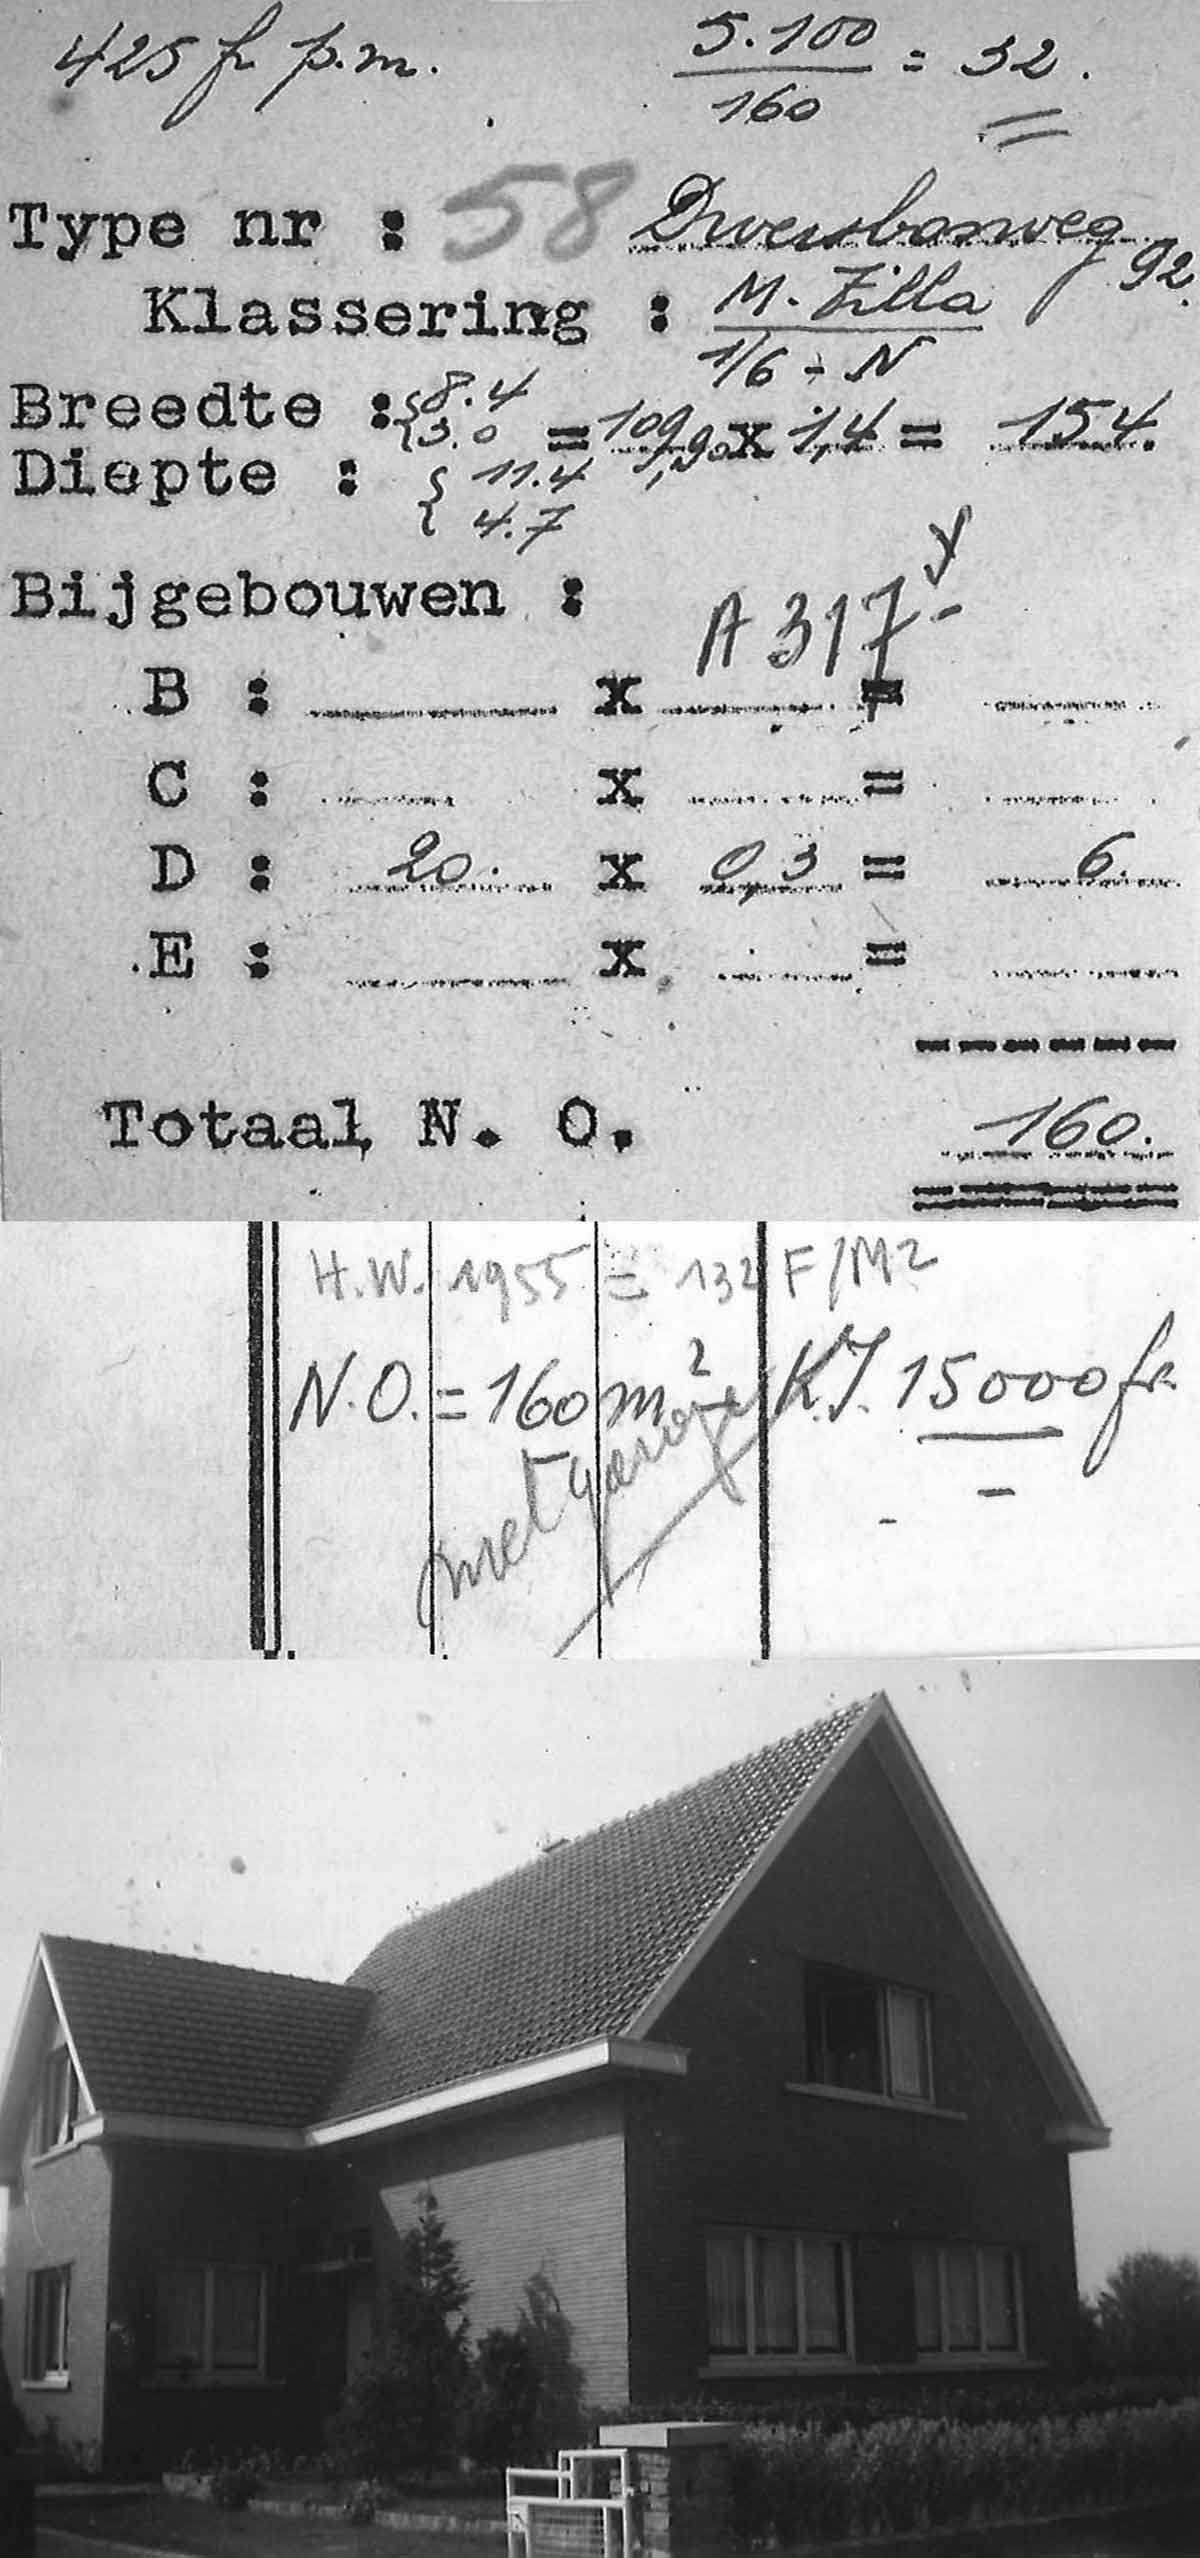 425 fr p.m. 5.100 / 160 = 32.
Type nr : 58 Dweersbosweg 92.
Klassering : M. Villa
1/6 - N
Breedte : { 8.4
{ 3.0 = 109,90 x 1,4 = 154.
Diepte : { 11.4
{ 4.7
Bijgebouwen :
A 317
B : x =
C : x =
D : 20. x 0,3 = 6.
E : x =
Totaal N. O. 160.
H.W. 1955 = 132 F/M2
N.O. = 160 m2 K.I. 15000 fr.
met garage